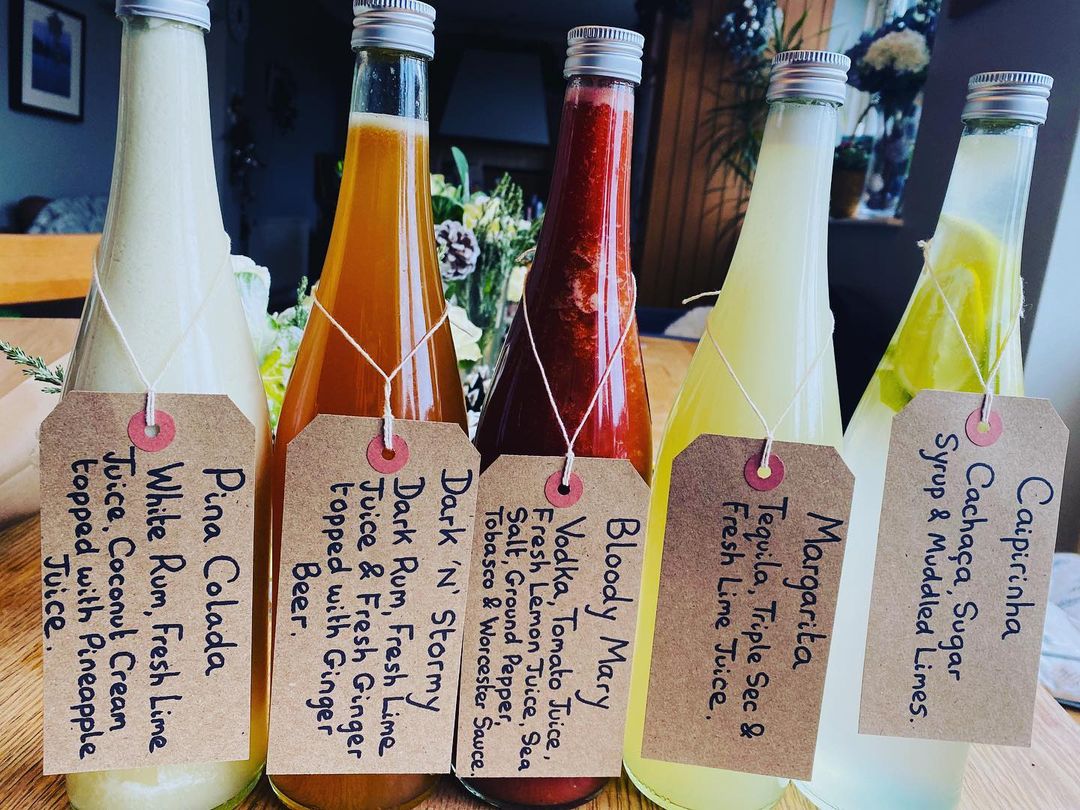 Pina Colada
White Rum, Fresh Lime
Juice, Coconut Cream
topped with Pineapple
Juice.
Dark 'N' Stormy
Dark Rum, Fresh Lime
Juice & Fresh Ginger
topped with Ginger
Beer.
Bloody Mary
Vodka, Tomato Juice,
Fresh Lemon Juice, Sea
Salt, Ground Pepper,
Tobasco & Worcester Sauce.
Margarita
Tequila, Triple Sec &
Fresh Lime Juice.
Caipirinha
Cachaça, Sugar
Syrup & Muddled Limes.